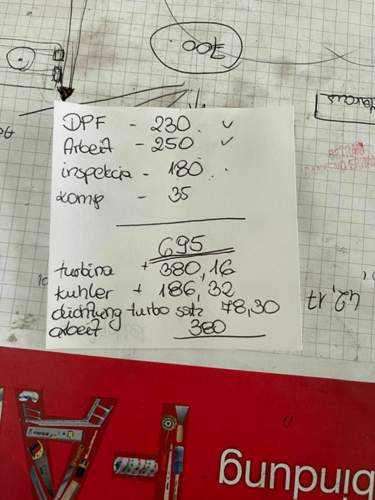 700
DPF - 230 ✓
Arbeit - 250 ✓
inspekcia - 180
komp - 35
695
turbina + 380,16
kuhler + 186,32
dichtung turbo satz 78,30
arbeit 380
42,17
bindung